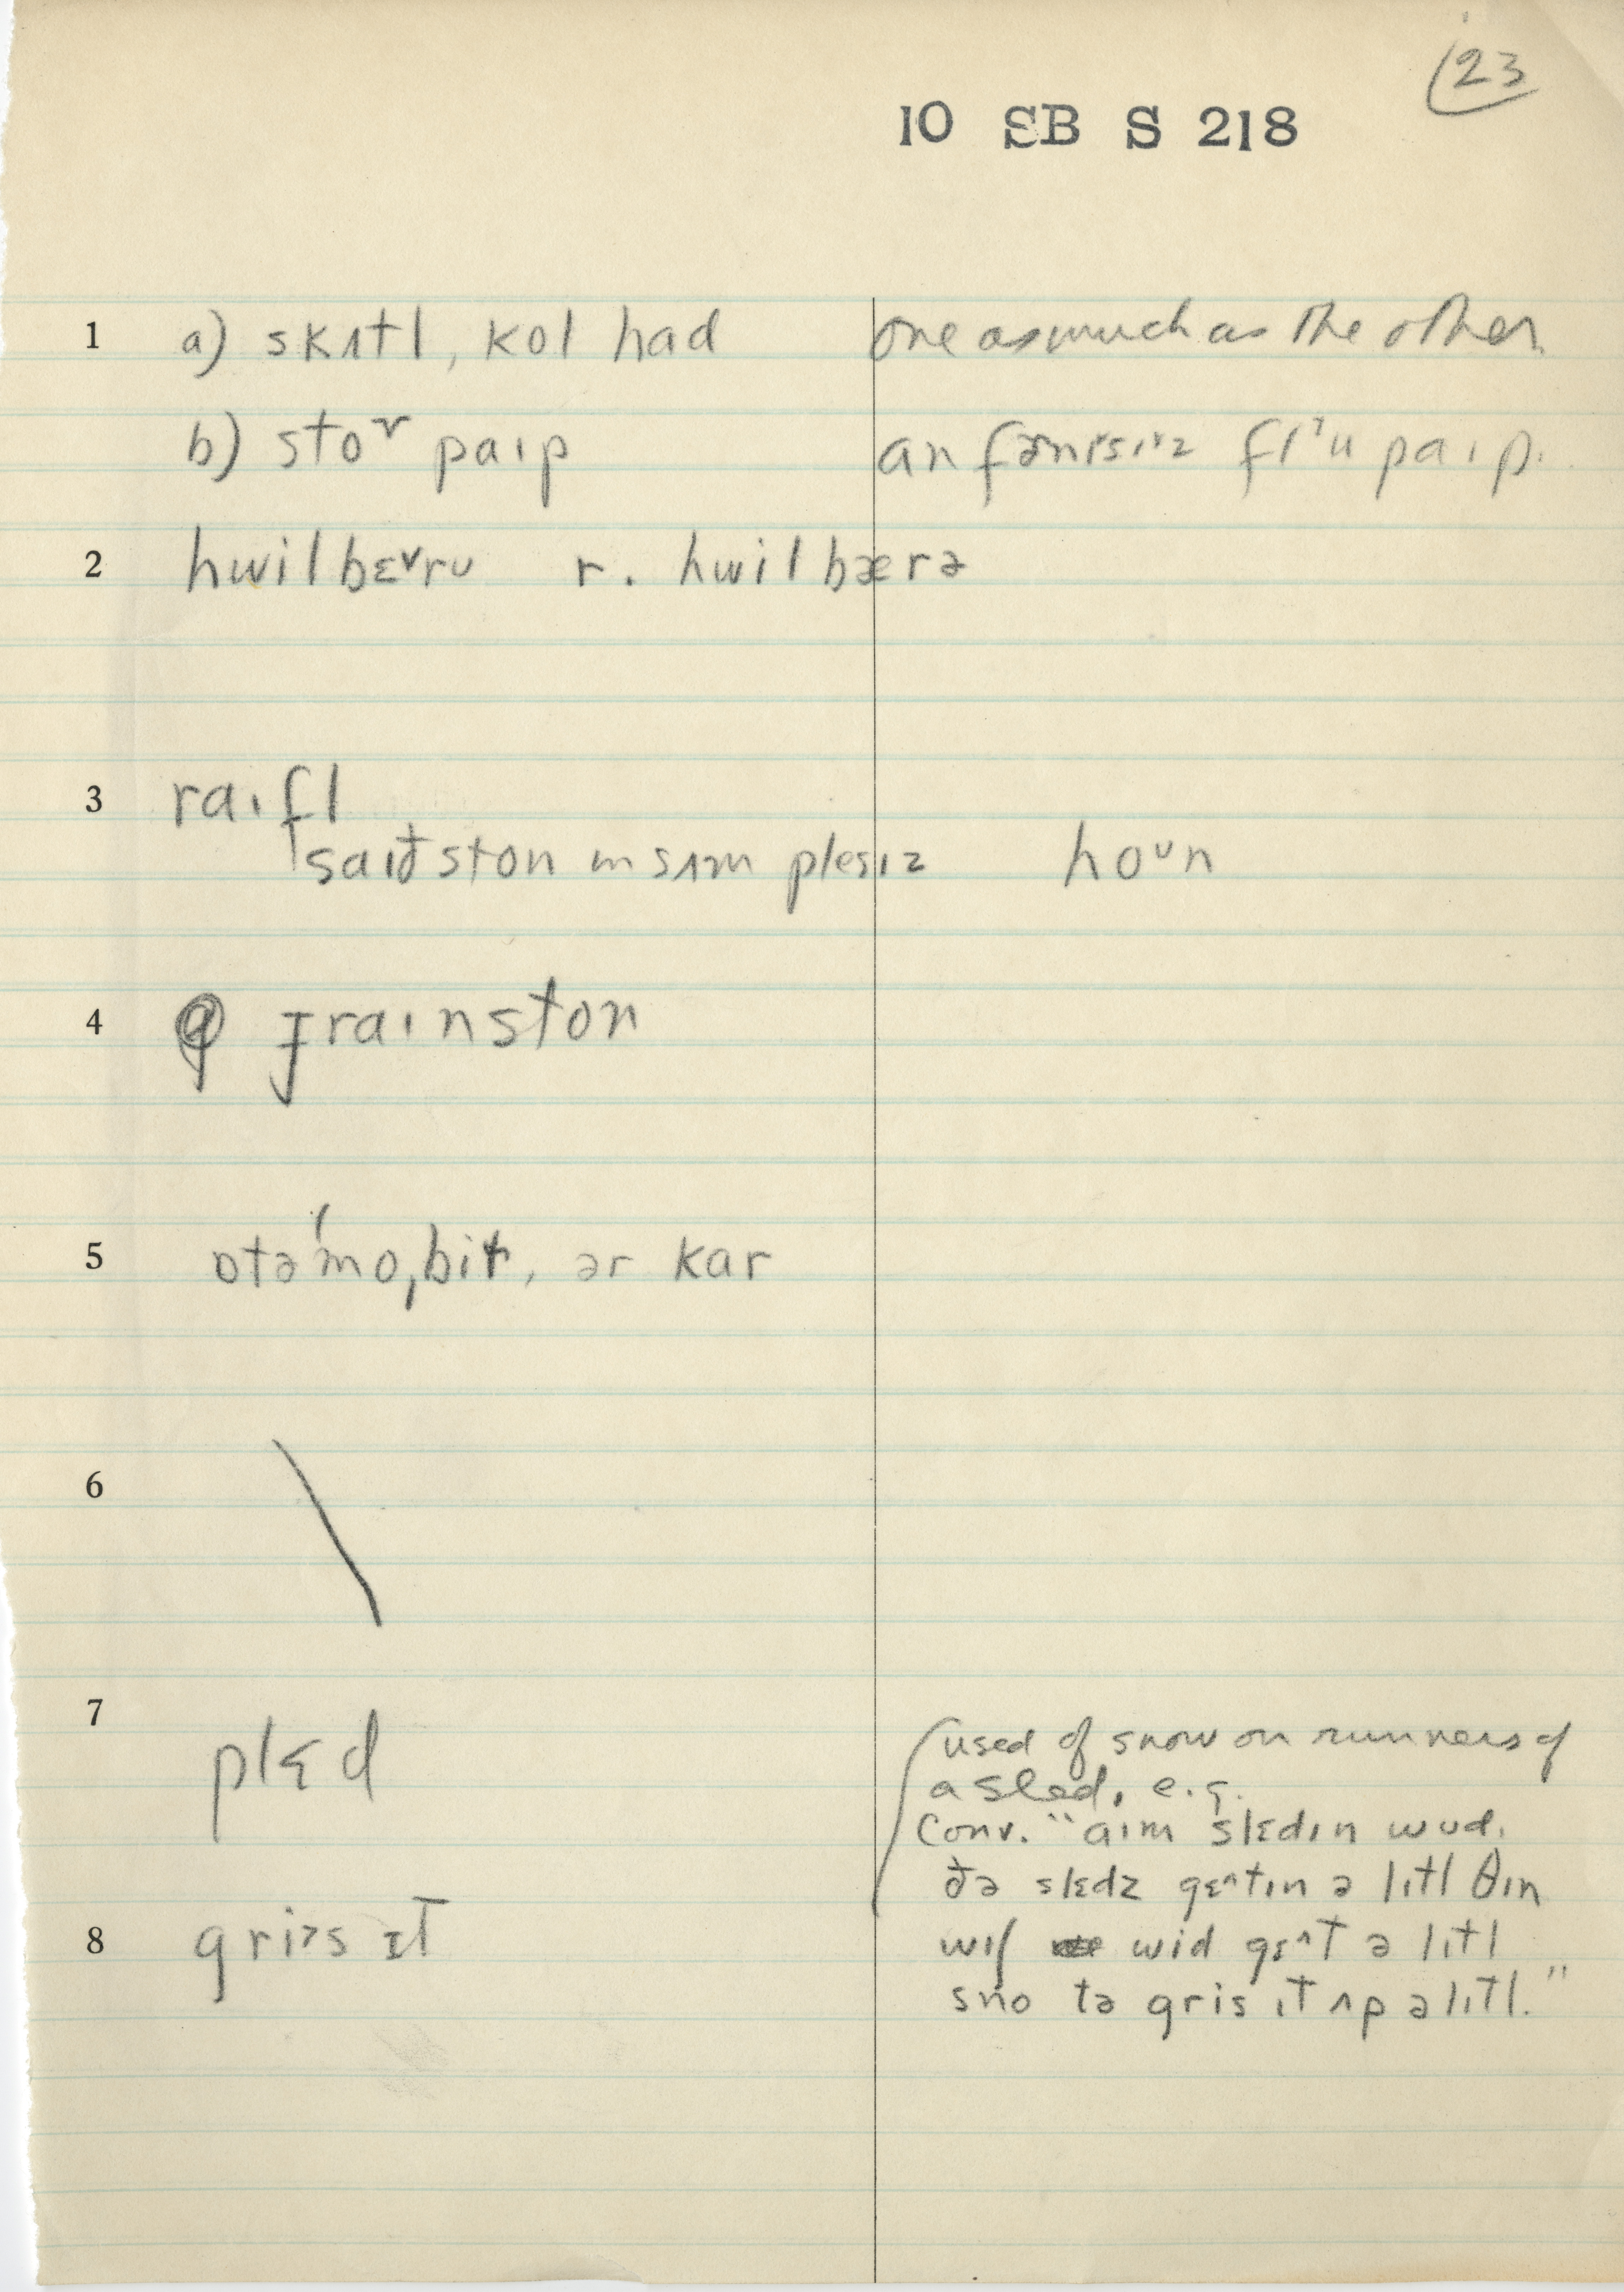 23
10 SB S 218
1 a) skʌtl, kol had one as much as the other.
b) stoʳ paɪp an fɚnɪsɪz flᵊu paɪp.
2 hwilbɛ˅rʊ r. hwilbærə
3 raɪfl
saɪðston ɪn sʌm plesɪz hoᶷn
4 graɪnston
5 ɒtə'mo,bil, ər kar
6
7 plɛd
used of snow on runners of
a sled, e.g.
Conv. "aɪm slɛdɪn wʊd.
ðə slɛdz gɛ^tɪn ə lɪtl θɪn
8 griᵊs ɪt
wɪl wid gɛ^t ə lɪtl
sno tə gris ɪt ʌp ə lɪtl."